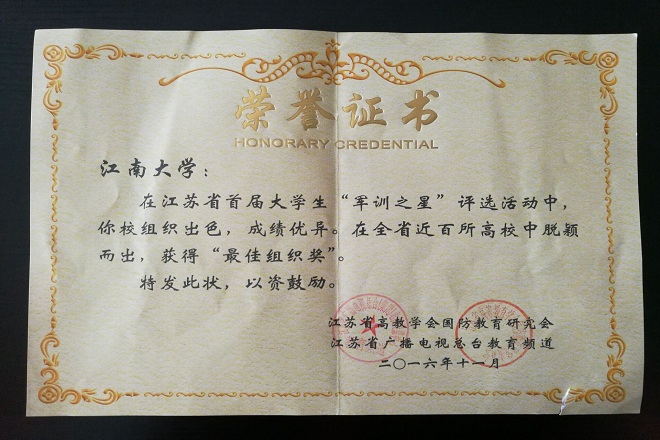 荣誉证书
HONORARY CREDENTIAL
江南大学：
在江苏省首届大学生“军训之星”评选活动中，
你校组织出色，成绩优异。在全省近百所高校中脱颖
而出，获得“最佳组织奖”。
特发此状，以资鼓励。
江苏省高教学会国防教育研究会
江苏省广播电视总台教育频道
二〇一六年十一月